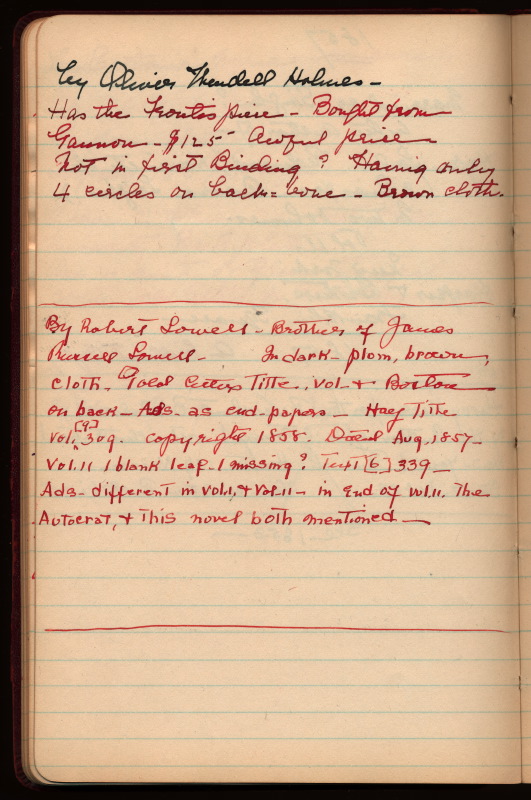 by Oliver Wendell Holmes -
Has the Frontis piece - Bought from
Gannon - $125 Awful price -
Not in first Binding? Having only
4 circles on back-bone - Brown cloth.
By Robert Lowell - Brother of James
Russell Lowell - In dark plom, brown,
cloth. Gold letters Title, vol. + Boston
on back - Ads. as end-papers - Half Title
Vol. I, [9] 309. copyright 1858. Dated Aug. 1857 -
Vol. II 1 blank leaf - 1 missing? Text [6] 339 -
Ads - different in vol. I, + Vol. II - in End of vol. II. The
Autocrat, + This novel both mentioned -